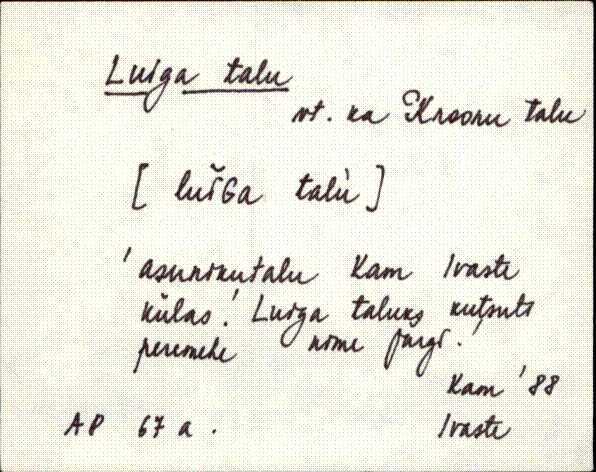 Luiga talu
vt. ka Krooni talu
[ luiGa talù ]
'asunikutalu Kam Ivaste
külas.' Luiga taluks kutsuti
peremehe nime järgi.'
Kam '88
AP 67 a. Ivaste